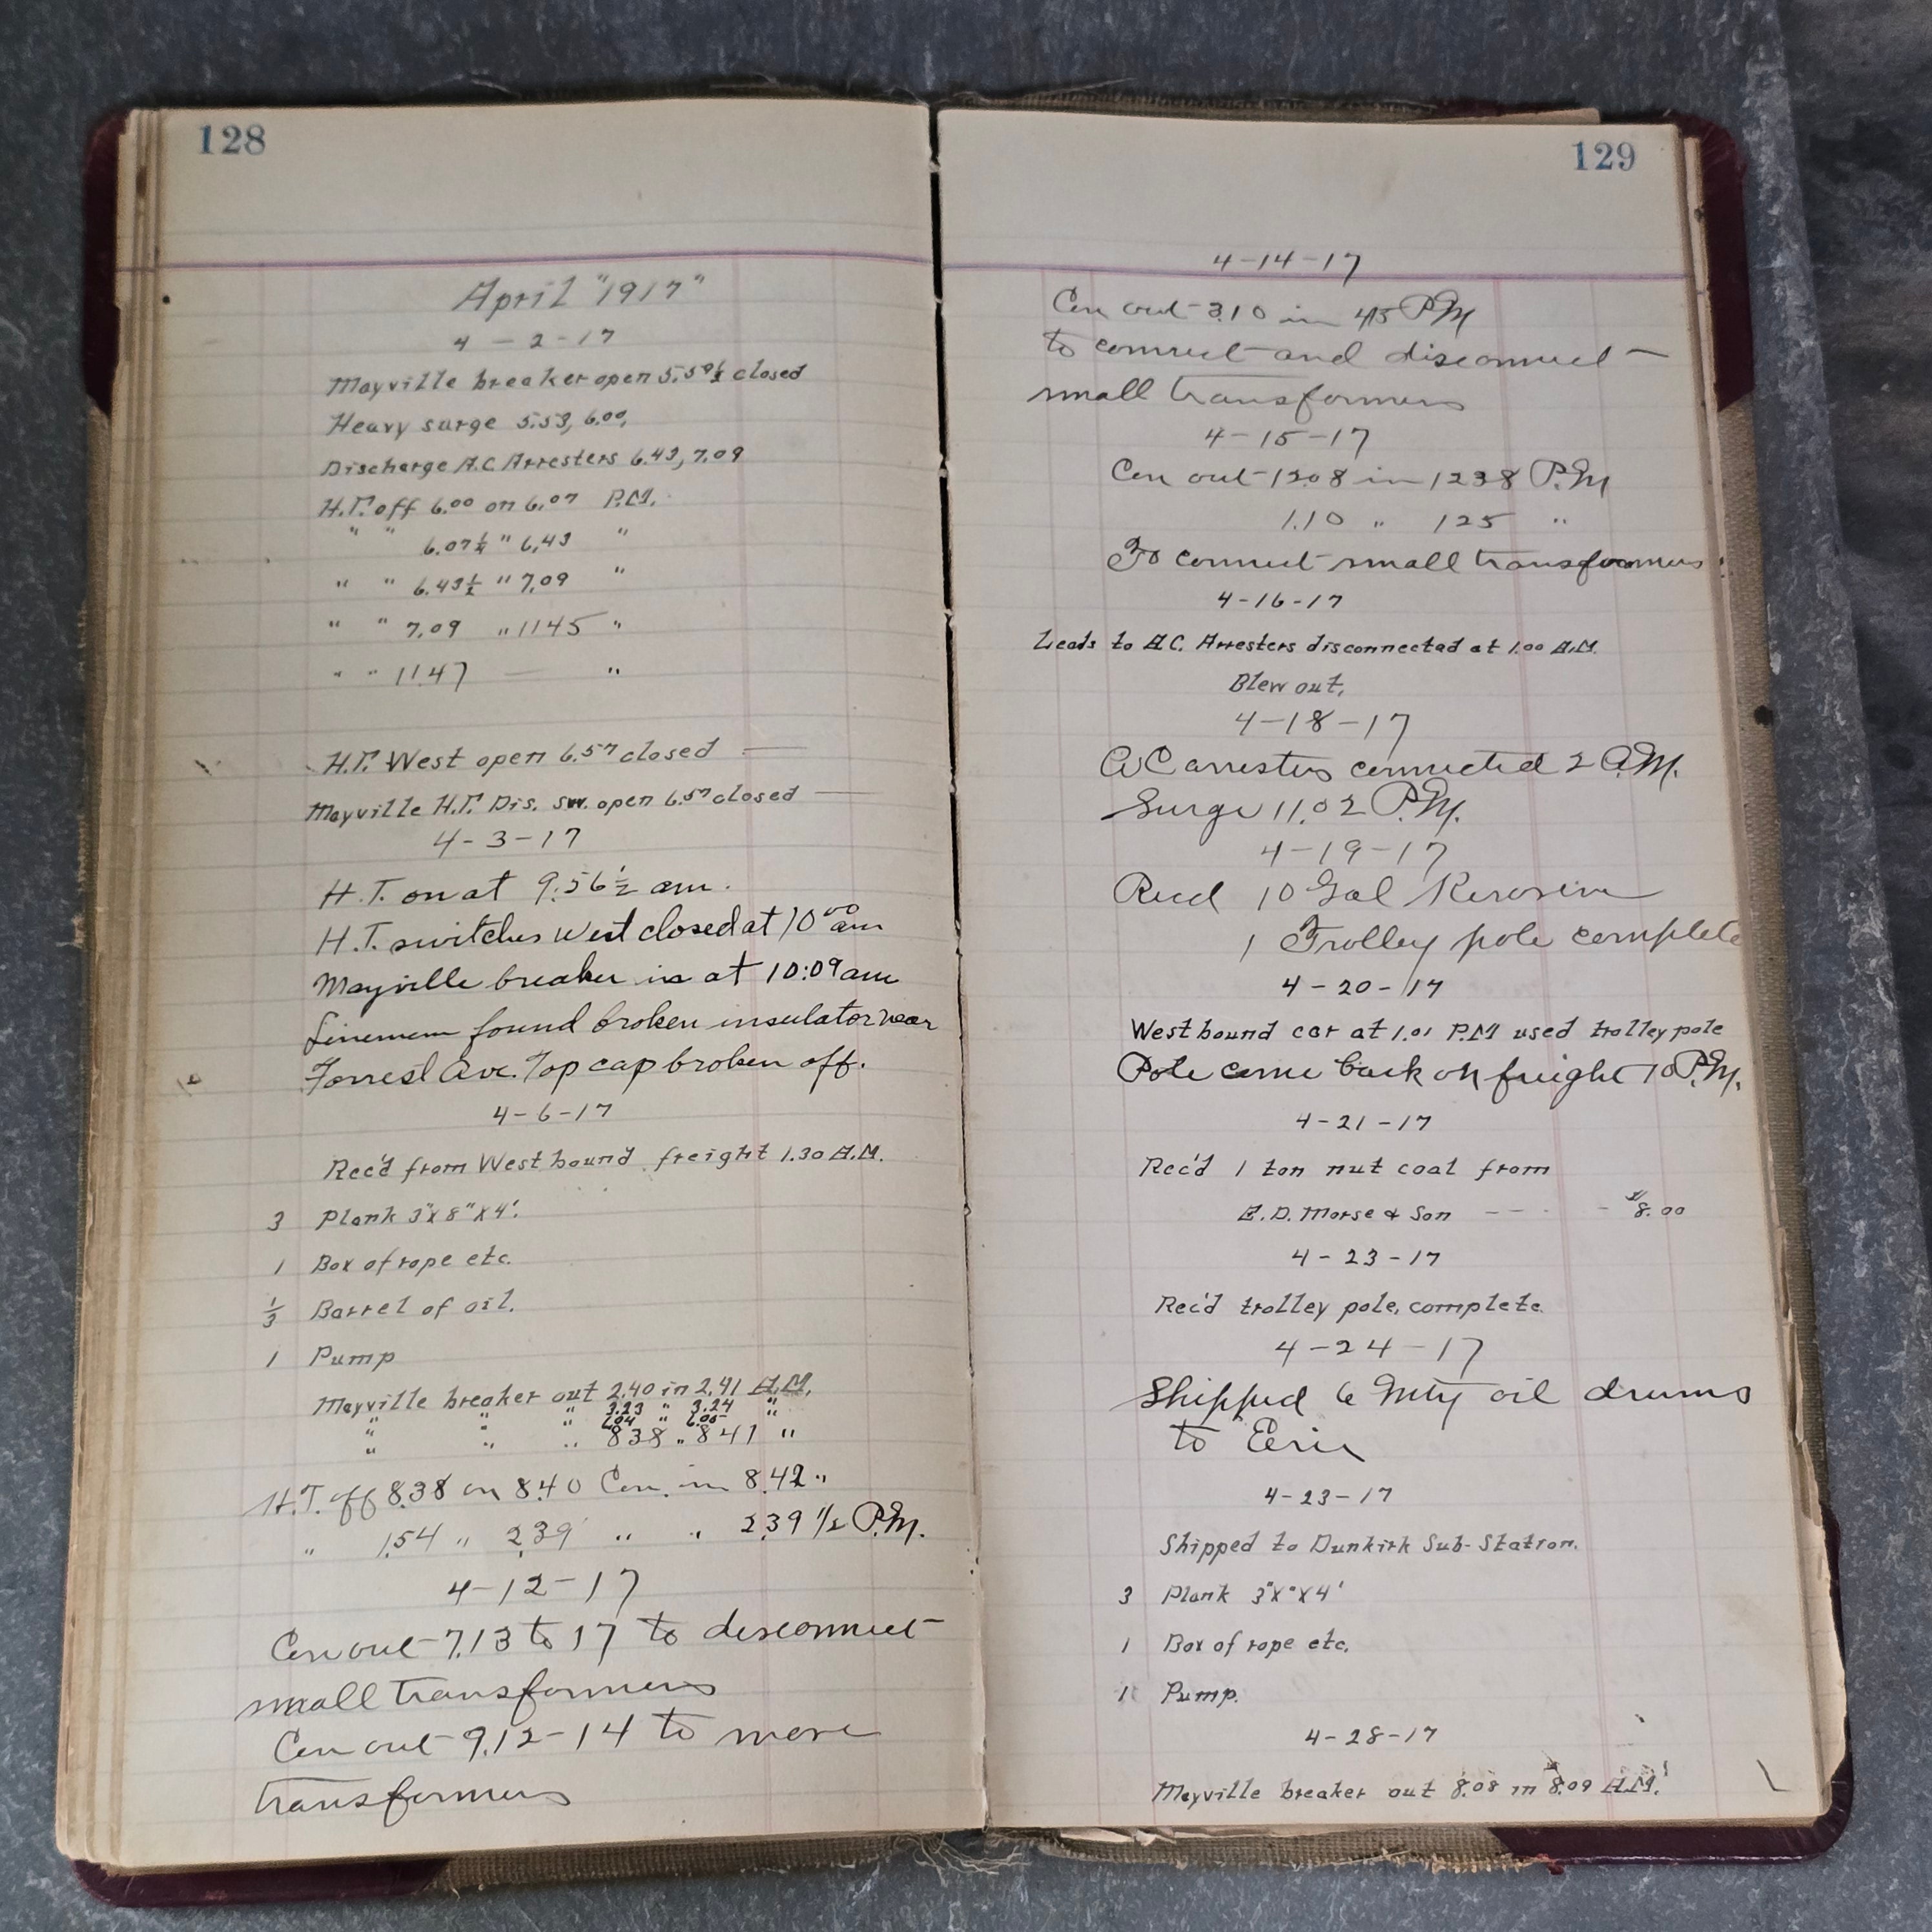 128
April "1917"
4 - 2 - 17
Mayville breaker open 5.59½ closed
Heavy surge 5.53, 6.00,
Discharge A.C. Arresters 6.43, 7.09
H.T. off 6.00 on 6.07 P.M.
" " 6.07½ " 6.43 "
" " 6.43½ " 7.09 "
" " 7.09 " 1145 "
" " 11.47 — "
H.T. West open 6.57 closed —
Mayville H.T. Dis. sw. open 6.57 closed —
4 - 3 - 17
H.T. on at 9.56½ am.
H.T. switches West closed at 10⁰⁰ am
Mayville breaker in at 10:09 am
Linemen found broken insulator near
Forrest Ave. Top cap broken off.
4 - 6 - 17
Rec'd from West bound freight 1.30 A.M.
3 Plank 3"x8"x4'.
1 Box of rope etc.
⅓ Barrel of oil.
1 Pump
Mayville breaker out 2.40 in 2.41 A.M.
" " " 3.23 " 3.24 "
" " " 6.04 " 6.05
" " " 838 " 841 "
H.T. off 8.38 on 8.40 Con. in 8.42 "
" 1.54 " 2.39 " " 2.39 1/2 P.M.
4 - 12 - 17
Con out 7.13 to 17 to disconnect
small transformers
Con out 9.12 - 14 to move
transformers
129
4 - 14 - 17
Con out 3.10 in 415 PM
to connect and disconnect
small transformers
4 - 15 - 17
Con out 12.08 in 1238 P.M
1.10 " 125 "
To connect small transformers
4 - 16 - 17
Leads to A.C. Arresters disconnected at 1.00 A.M.
Blew out.
4 - 18 - 17
AC arresters connected 2 A.M.
Surge 11.02 P.M.
4 - 19 - 17
Recd 10 Gal Kerosine
1 Trolley pole complete
4 - 20 - 17
West bound car at 1.01 P.M used trolley pole
Pole come back on freight 10 P.M.
4 - 21 - 17
Rec'd 1 ton nut coal from
E.D. Morse & Son - - - - $8.00
4 - 23 - 17
Rec'd trolley pole, complete.
4 - 24 - 17
Shipped 6 Mty oil drums
to Erie
4 - 23 - 17
Shipped to Dunkirk Sub-Station.
3 Plank 3"x"x4'
1 Box of rope etc.
1 Pump.
4 - 28 - 17
Mayville breaker out 8.08 in 8.09 A.M.